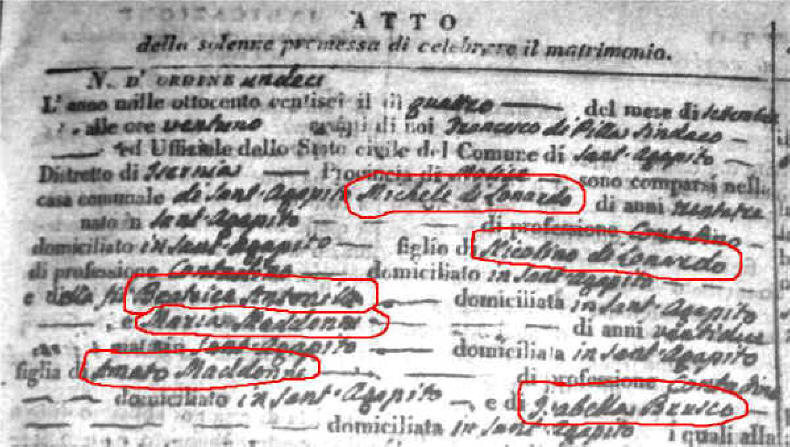 ATTO
della solenne promessa di celebrare il matrimonio.
N. D' ORDINE undeci
L'anno mille ottocento ventisei il dì quattro del mese di settembre
alle ore ventuno avanti di noi Francesco di Pilla Sindaco
ed Uffiziale dello Stato civile del Comune di Sant'Agapito
Distretto di Isernia Provincia di Molise sono comparsi nella
casa comunale di Sant'Agapito Michele di Lonardo di anni
nato in Sant'Agapito di professione Contadino
domiciliato in Sant'Agapito figlio di Nicolino di Lonardo
di professione Contadino domiciliato in Sant'Agapito
e della fu Beatrice Antonilli domiciliata in Sant'Agapito
e Maria Maddonni di anni ventidue
nata in Sant'Agapito domiciliata in Sant'Agapito
figlia di Amato Maddonni di professione Contadino
domiciliato in Sant'Agapito e di Isabella Brusco
domiciliata in Sant'Agapito i quali alla